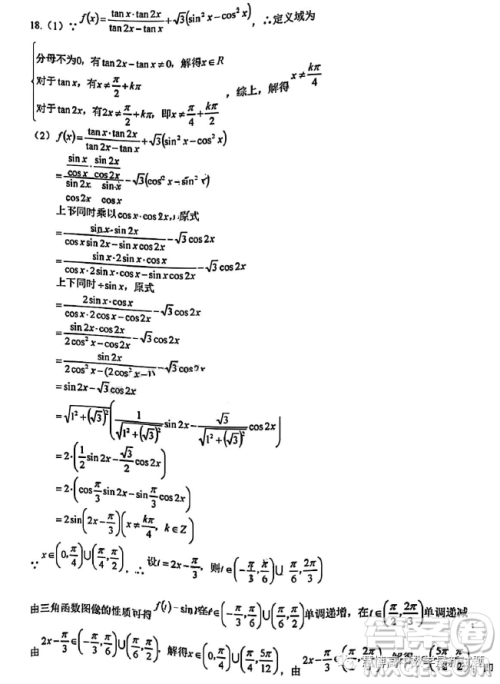 18.(1) ∵ f(x)=\frac{tan x·tan 2x}{tan 2x-tan x}+√3(sin²x-cos²x), ∴定义域为
{分母不为0,有tan 2x-tan x≠0,解得x∈R
对于tan x,有x≠\frac{π}{2}+kπ ,综上,解得x≠\frac{kπ}{4}
对于tan 2x,有2x≠\frac{π}{2}+kπ,即x≠\frac{π}{4}+\frac{kπ}{2}
(2) f(x)=\frac{tan x·tan 2x}{tan 2x-tan x}+√3(sin²x-cos²x)
=\frac{\frac{sin x}{cos x}·\frac{sin 2x}{cos 2x}}{\frac{sin 2x}{cos 2x}-\frac{sin x}{cos x}}-√3(cos²x-sin²x)
上下同时乘以cos x·cos 2x,原式
=\frac{sin x·sin 2x}{cos x sin 2x-sin x cos 2x}-√3cos 2x
=\frac{sin x·2sin x·cos x}{cos x·2sin x·cos x-sin x cos 2x}-√3cos 2x
上下同时÷sin x,原式
=\frac{2sin x·cos x}{cos x·2cos x-cos 2x}-√3cos 2x
=\frac{sin 2x}{2cos²x-cos 2x}-√3cos 2x
=\frac{sin 2x}{2cos²x-(2cos²x-1)}-√3cos 2x
=sin 2x-√3cos 2x
=√{1²+(√3)²}(\frac{1}{√{1²+(√3)²}}sin 2x-\frac{√3}{√{1²+(√3)²}}cos 2x)
=2·(\frac{1}{2}sin 2x-\frac{√3}{2}cos 2x)
=2·(cos\frac{π}{3}sin 2x-sin\frac{π}{3}cos 2x)
=2sin(2x-\frac{π}{3})(x≠\frac{kπ}{4},k∈Z)
∵x∈(0,\frac{π}{4})∪(\frac{π}{4},\frac{π}{2}),∴设t=2x-\frac{π}{3},则t∈(-\frac{π}{3},\frac{π}{6})∪(\frac{π}{6},\frac{2π}{3})
由三角函数图像的性质可得f(t)-sin t在t∈(-\frac{π}{3},\frac{π}{6})∪(\frac{π}{6},\frac{π}{2})单调递增,在t∈(\frac{π}{2},\frac{2π}{3})单调递减
由2x-\frac{π}{3}∈(-\frac{π}{3},\frac{π}{6})∪(\frac{π}{6},\frac{π}{2}),解得x∈(0,\frac{π}{4})∪(\frac{π}{4},\frac{5π}{12}),由2x-\frac{π}{3}∈